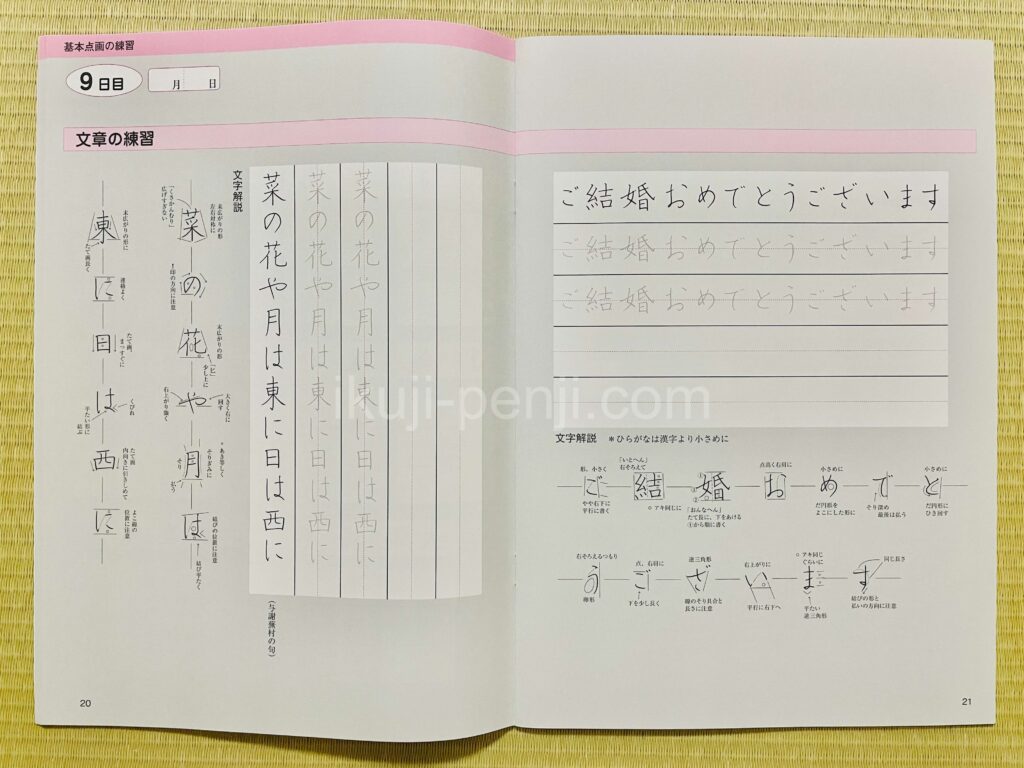 基本点画の練習
9日目
月 日
文章の練習
文字解説
菜の花や月は東に日は西に
菜の花や月は東に日は西に
菜の花や月は東に日は西に
(与謝蕪村の句)
菜
末広がりの形
左右対称に
「くさかんむり」
広げすぎない
の
↑印の方向に注意
花
末広がりの形
「ヒ」
少し上に
や
大きく右に
回す
右上がり強く
月
。あき等しく
そりぎみに
そり
払う
は
結びの位置に注意
結び平たく
東
末広がりの形に
たて画長く
に
連絡よく
日
たて画、
まっすぐに
は
くびれ
平たい形に
結ぶ
西
たて画
内向きに引きしめて
に
よこ画の
位置に注意
20
ご結婚おめでとうございます
ご結婚おめでとうございます
ご結婚おめでとうございます
文字解説 *ひらがなは漢字より小さめに
形、小さく
ご
やや右下に
平行に書く
「いとへん」
右そろえて
結
○アキ同じに
婚
「おんなへん」
たて長に、下をあける
①から順に書く
点高く右肩に
お
小さめに
め
だ円形を
よこにした形に
で
そり深め
最後は払う
小さめに
と
だ円形に
ひき回す
右そろえるつもり
う
卵形
点、右肩に
ご
下を少し長く
逆三角形
ざ
線のそり具合と
長さに注意
右上がりに
い
平行に右下へ
○アキ同じ
ぐらいに
ま
平たい
逆三角形
同じ長さ
す
結びの形と
払いの方向に注意
21
ikuji-penji.com